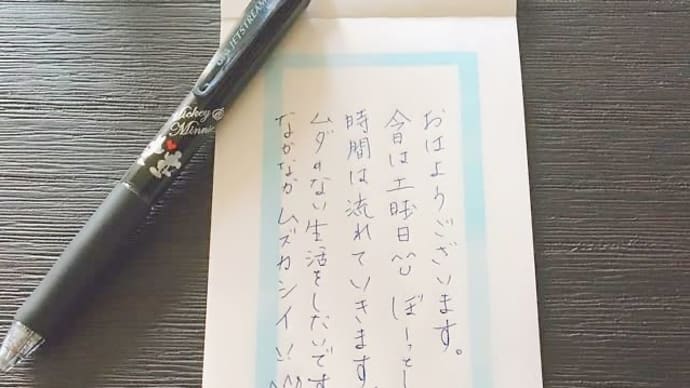 おはようございます。
今日は土曜日 ぼーっとし
時間は流れていきます。
ムダのない生活をしたいです
なかなかムズカシイ!!
JETSTREAM
Mickey &
Minnie